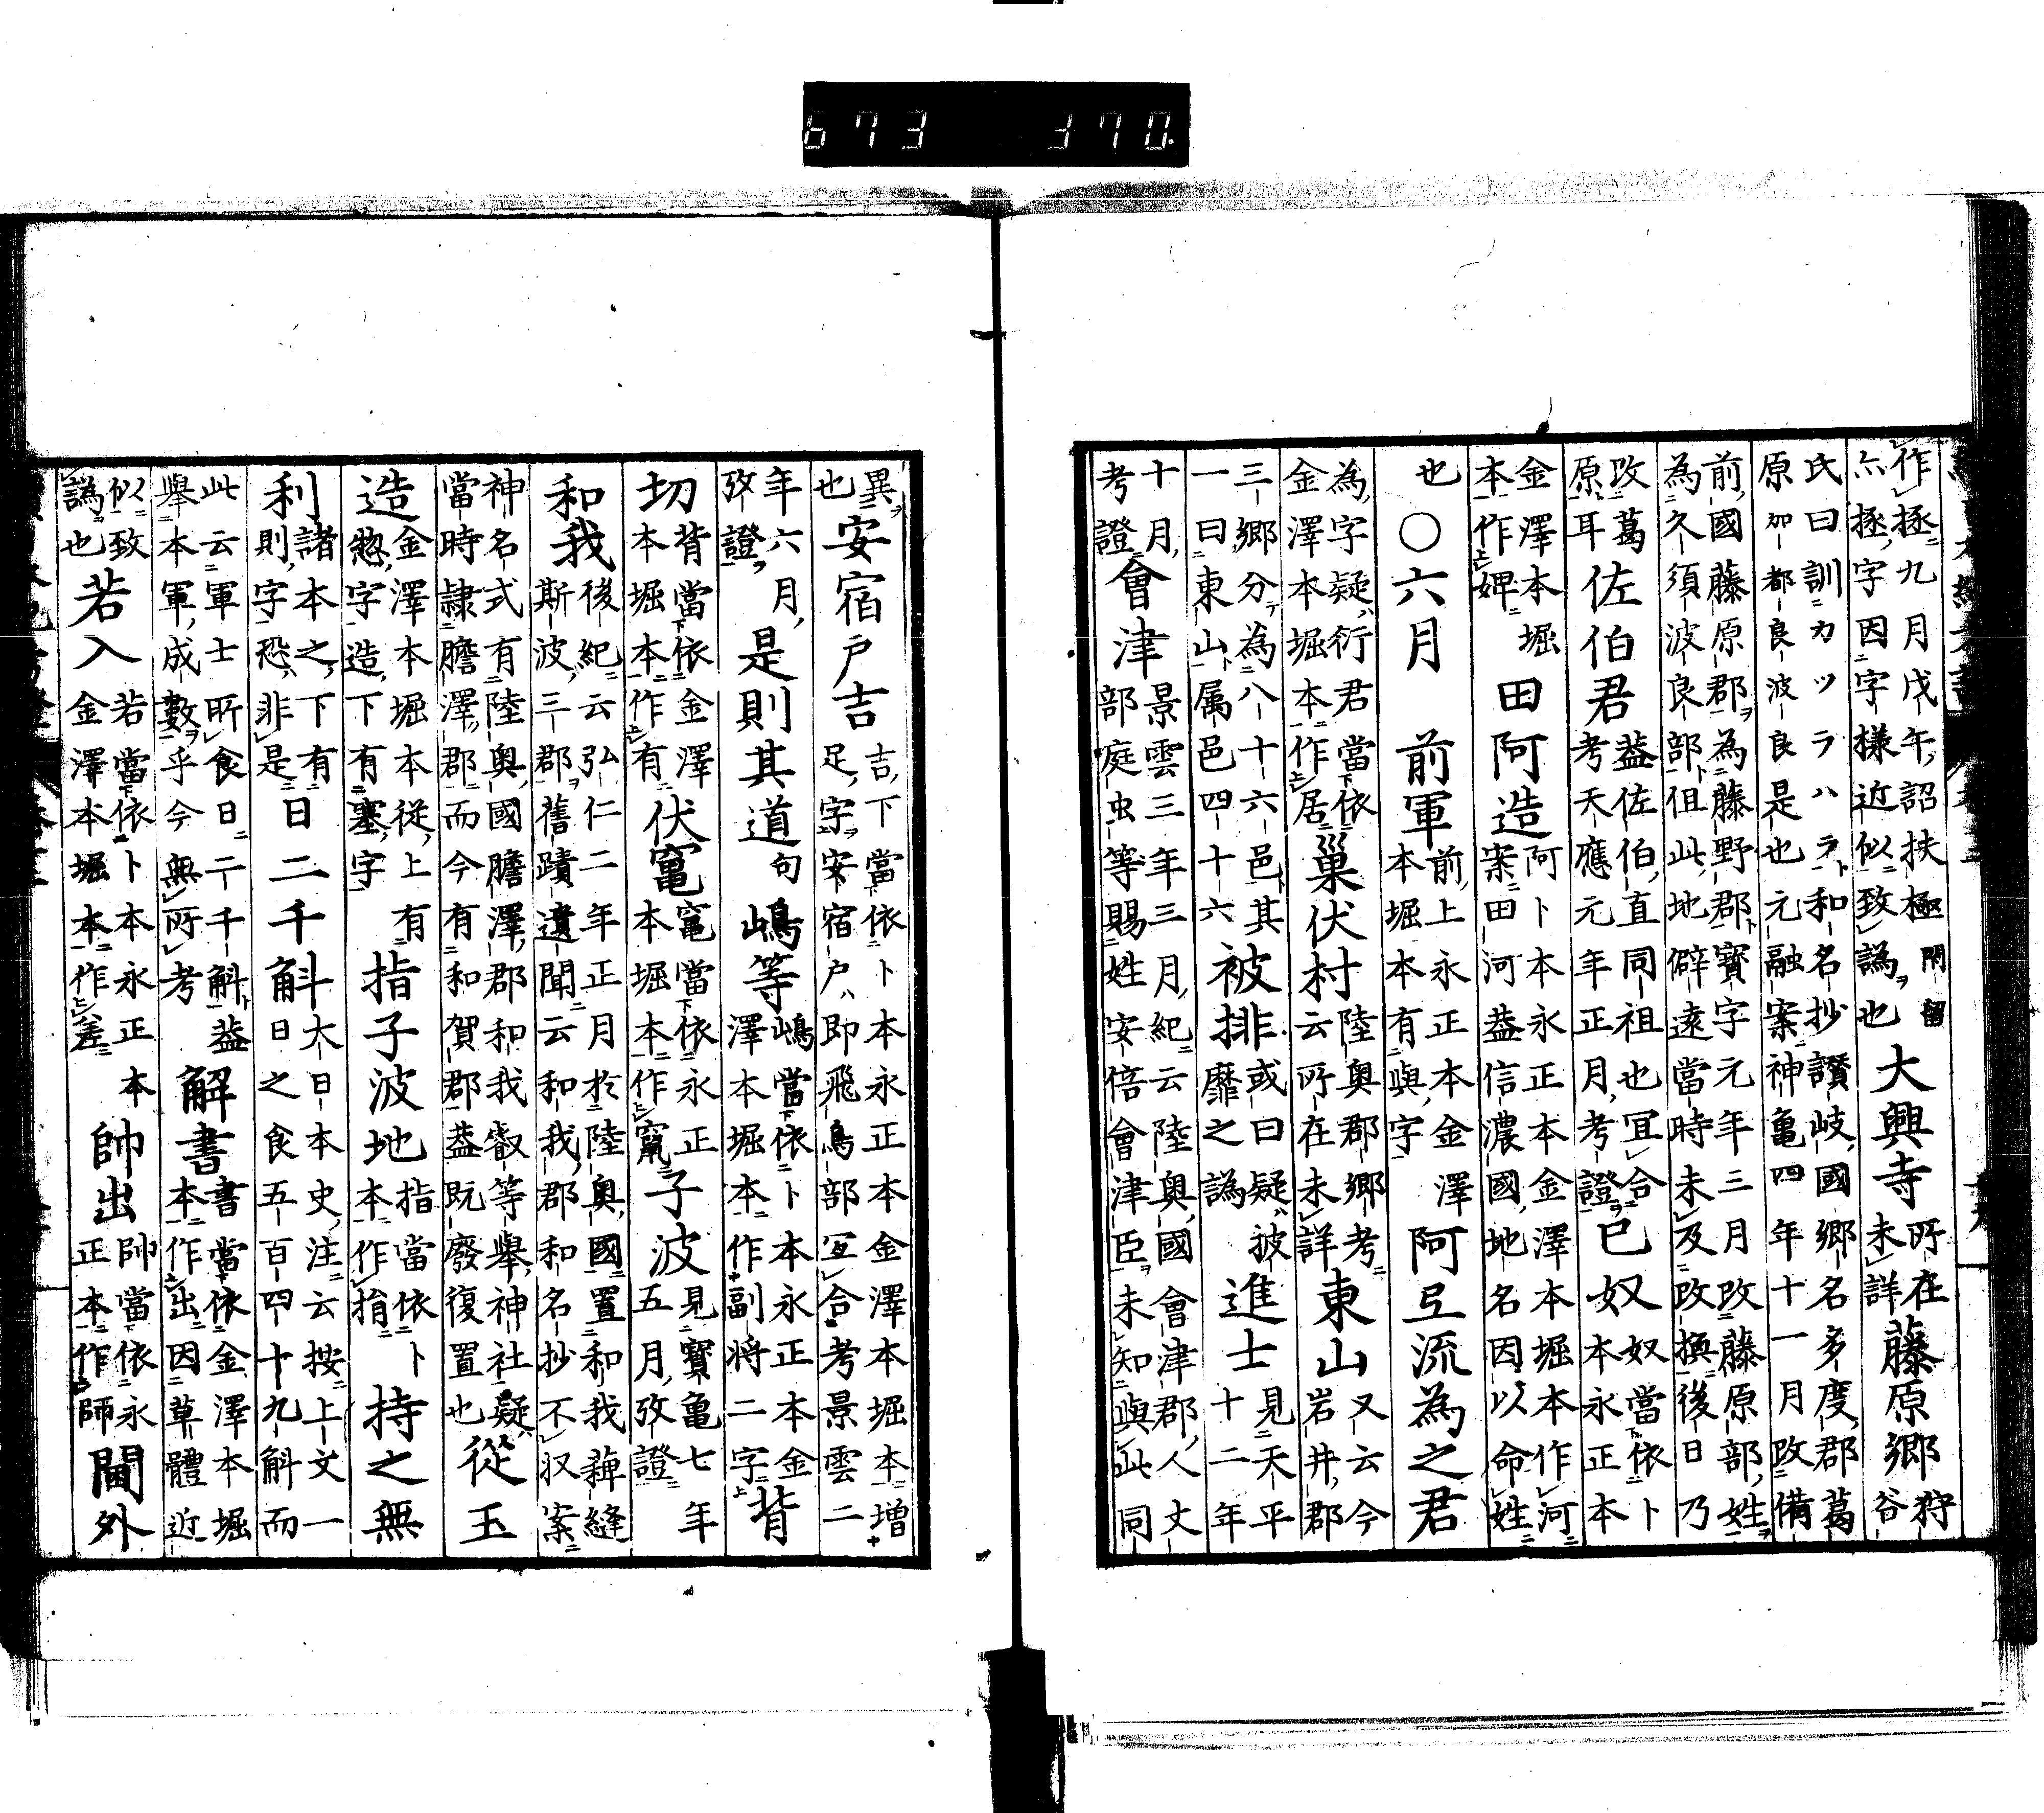 作拯九月戊午詔扶極
亦拯字因字樣近似致譌也
大興寺
所在
未詳
藤原郷
狩
谷
氏曰訓カツラハラ和名抄讃岐國郷名多度郡葛
原加都良波良是也元融案神亀四年十一月改備
前國藤原郡為藤野郡寶字元年三月改藤原部姓
為久須波良部但此地僻遠當時未及改換後日乃
改葛
原耳
佐伯君
蓋佐伯直同祖也冝合
考天應元年正月考證
巳奴
奴當依卜
本永正本
金澤本堀
本作婢
田阿造
阿卜本永正本金澤本堀本作河
案田河蓋信濃國地名因以命姓
也
○六月
前軍
前上永正本金澤
本堀本有與字
阿弖流為之君
為字疑衍君當依
金澤本堀本作居
巣伏村
陸奥郡郷考
云所在未詳
東山
又云今
岩井郡
三郷分為八十六邑其
一曰東山属邑四十六
被排
或曰疑披
靡之譌
進士
見天平
十二年
十月
考證
會津
景雲三年三月紀云陸奥國會津郡人丈
部庭虫等賜姓安倍會津臣未知與此同
異
也
安宿戸吉
吉下當依卜本永正本金澤本堀本増
足字安宿戸ハ即飛鳥部冝合考景雲二
年六月
攷證
是則其道
句
嶋等
嶋當依卜本永正本金
澤本堀本作副将二字
背
切
背當依金澤
本堀本作有
伏竃
竃當依永正
本堀本作竄
子波
見寶亀七年
五月攷證
和我
後紀云弘仁二年正月於陸奥國置和我薭縫
斯波三郡舊蹟遺聞云和我郡和名抄不収案
神名式有陸奥國膽澤郡和我叡等舉神社疑
當時隷膽澤郡而今有和賀郡蓋既廢復置也
從玉
造
金澤本堀本從上有
惣字造下有塞字
指子波地
指當依卜
本作捎
持之無
利
諸本之下有
則字恐非是
日二千斛
大日本史注云按上文一
日之食五百四十九斛而
此云軍士所食日二千斛蓋
舉本軍成數乎今無所考
解書
書當依金澤本堀
本作出因草體近
似致
譌也
若入
若當依卜本永正本
金澤本堀本作差
帥出
帥當依永
正本作師
閫外